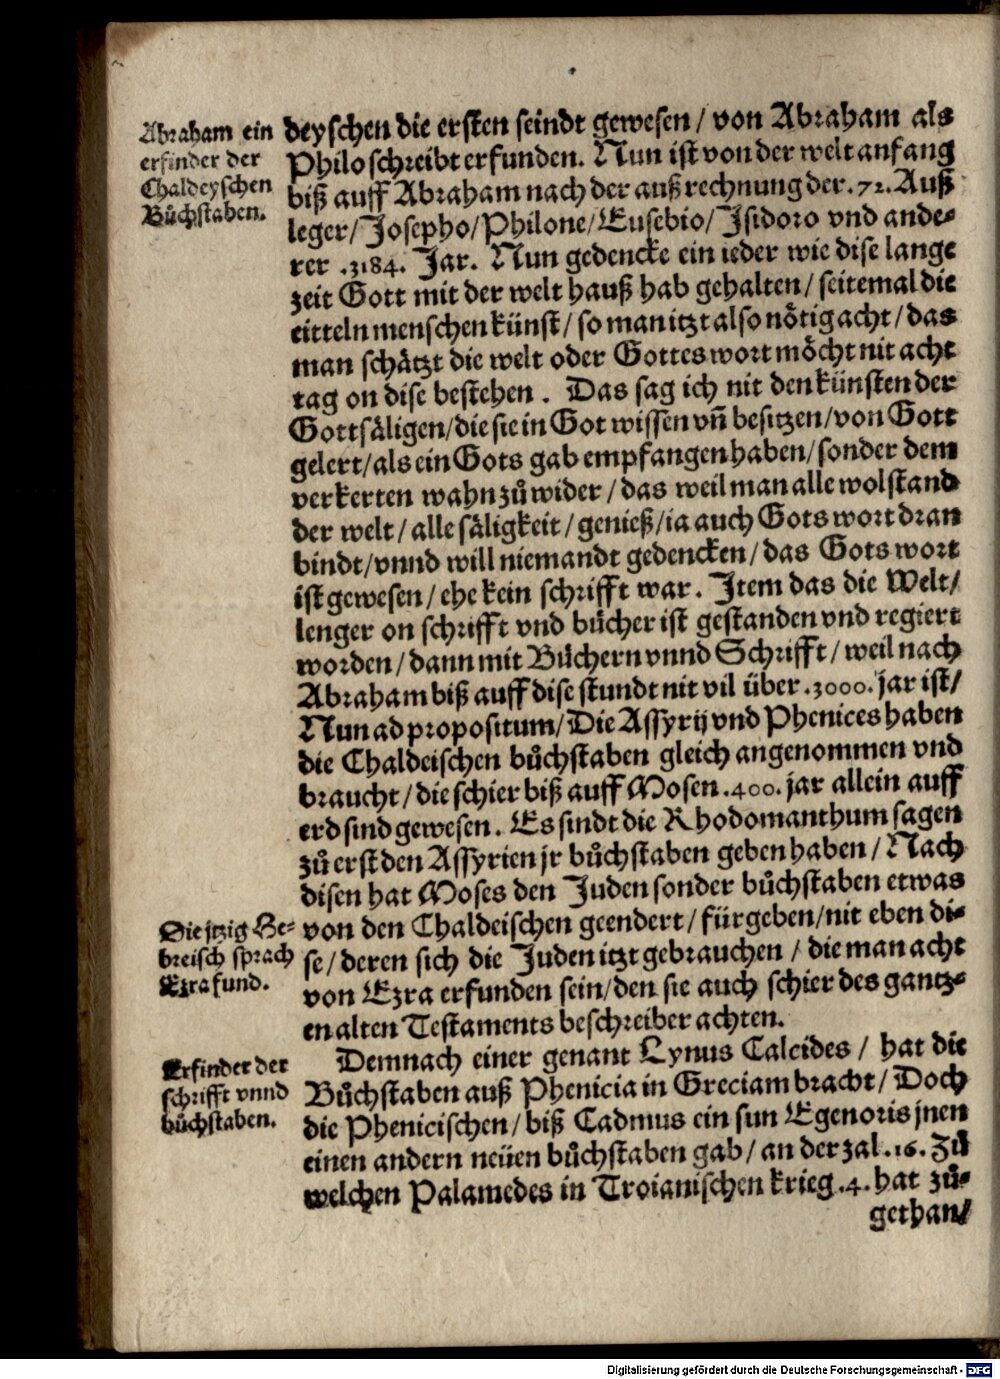 Abraham ein
erfinder der
Chaldeyschen
Bůchstaben.
deyschen die ersten seindt gewesen / von Abraham als
Philo schreibt erfunden. Nun ist von der welt anfang
biß auff Abraham nach der außrechnung der .72. Auß
leger / Josepho / Philone / Eusebio / Isidoro vnd ande-
rer .3184. Jar. Nun gedencke ein ieder wie dise lange
zeit Gott mit der welt hauß hab gehalten / seitemal die
eitteln menschen künst / so man itzt also nötig acht / das
man schätzt die welt oder Gottes wort möcht nit acht
tag on dise bestehen . Das sag ich nit den künsten der
Gottsäligen / die sie in Got wissen vñ besitzen / von Gott
gelert / als ein Gots gab empfangen haben / sonder dem
verkerten wahn zů wider / das weil man alle wolstand
der welt / alle säligkeit / genieß / ia auch Gots wort dran
bindt / vnnd will niemandt gedencken / das Gots wort
ist gewesen / ehe kein schrifft war. Item das die Welt /
lenger on schrifft vnd bücher ist gestanden vnd regiert
worden / dann mit Büchern vnnd Schrifft / weil nach
Abraham biß auff dise stundt nit vil über .3000. jar ist /
Nun ad propositum / Die Assyrij vnd Phenices haben
die Chaldeischen bůchstaben gleich angenommen vnd
braucht / die schier biß auff Mosen .400. jar allein auff
erd sind gewesen . Es sindt die Rhodomanthum sagen
zů erst den Assyrien jr bůchstaben geben haben / Nach
disen hat Moses den Juden sonder bůchstaben etwas
von den Chaldeischen geendert / fürgeben / nit eben di-
se / deren sich die Juden itzt gebrauchen / die man acht
von Ezra erfunden sein / den sie auch schier des gantz-
en alten Testaments beschreiber achten.
Die jtzig He-
breisch sprach
Ezra fund.
Demnach einer genant Lynus Calcides / hat die
Bůchstaben auß Phenicia in Greciam bracht / Doch
die Phenicischen / biß Cadmus ein sun Egenoris jnen
einen andern neüen bůchstaben gab / an der zal .16. Zů
welchen Palamedes in Troianischen krieg .4. hat zů-
gethan /
Erfinder der
schrifft vnnd
bůchstaben.
Digitalisierung gefördert durch die Deutsche Forschungsgemeinschaft - DFG